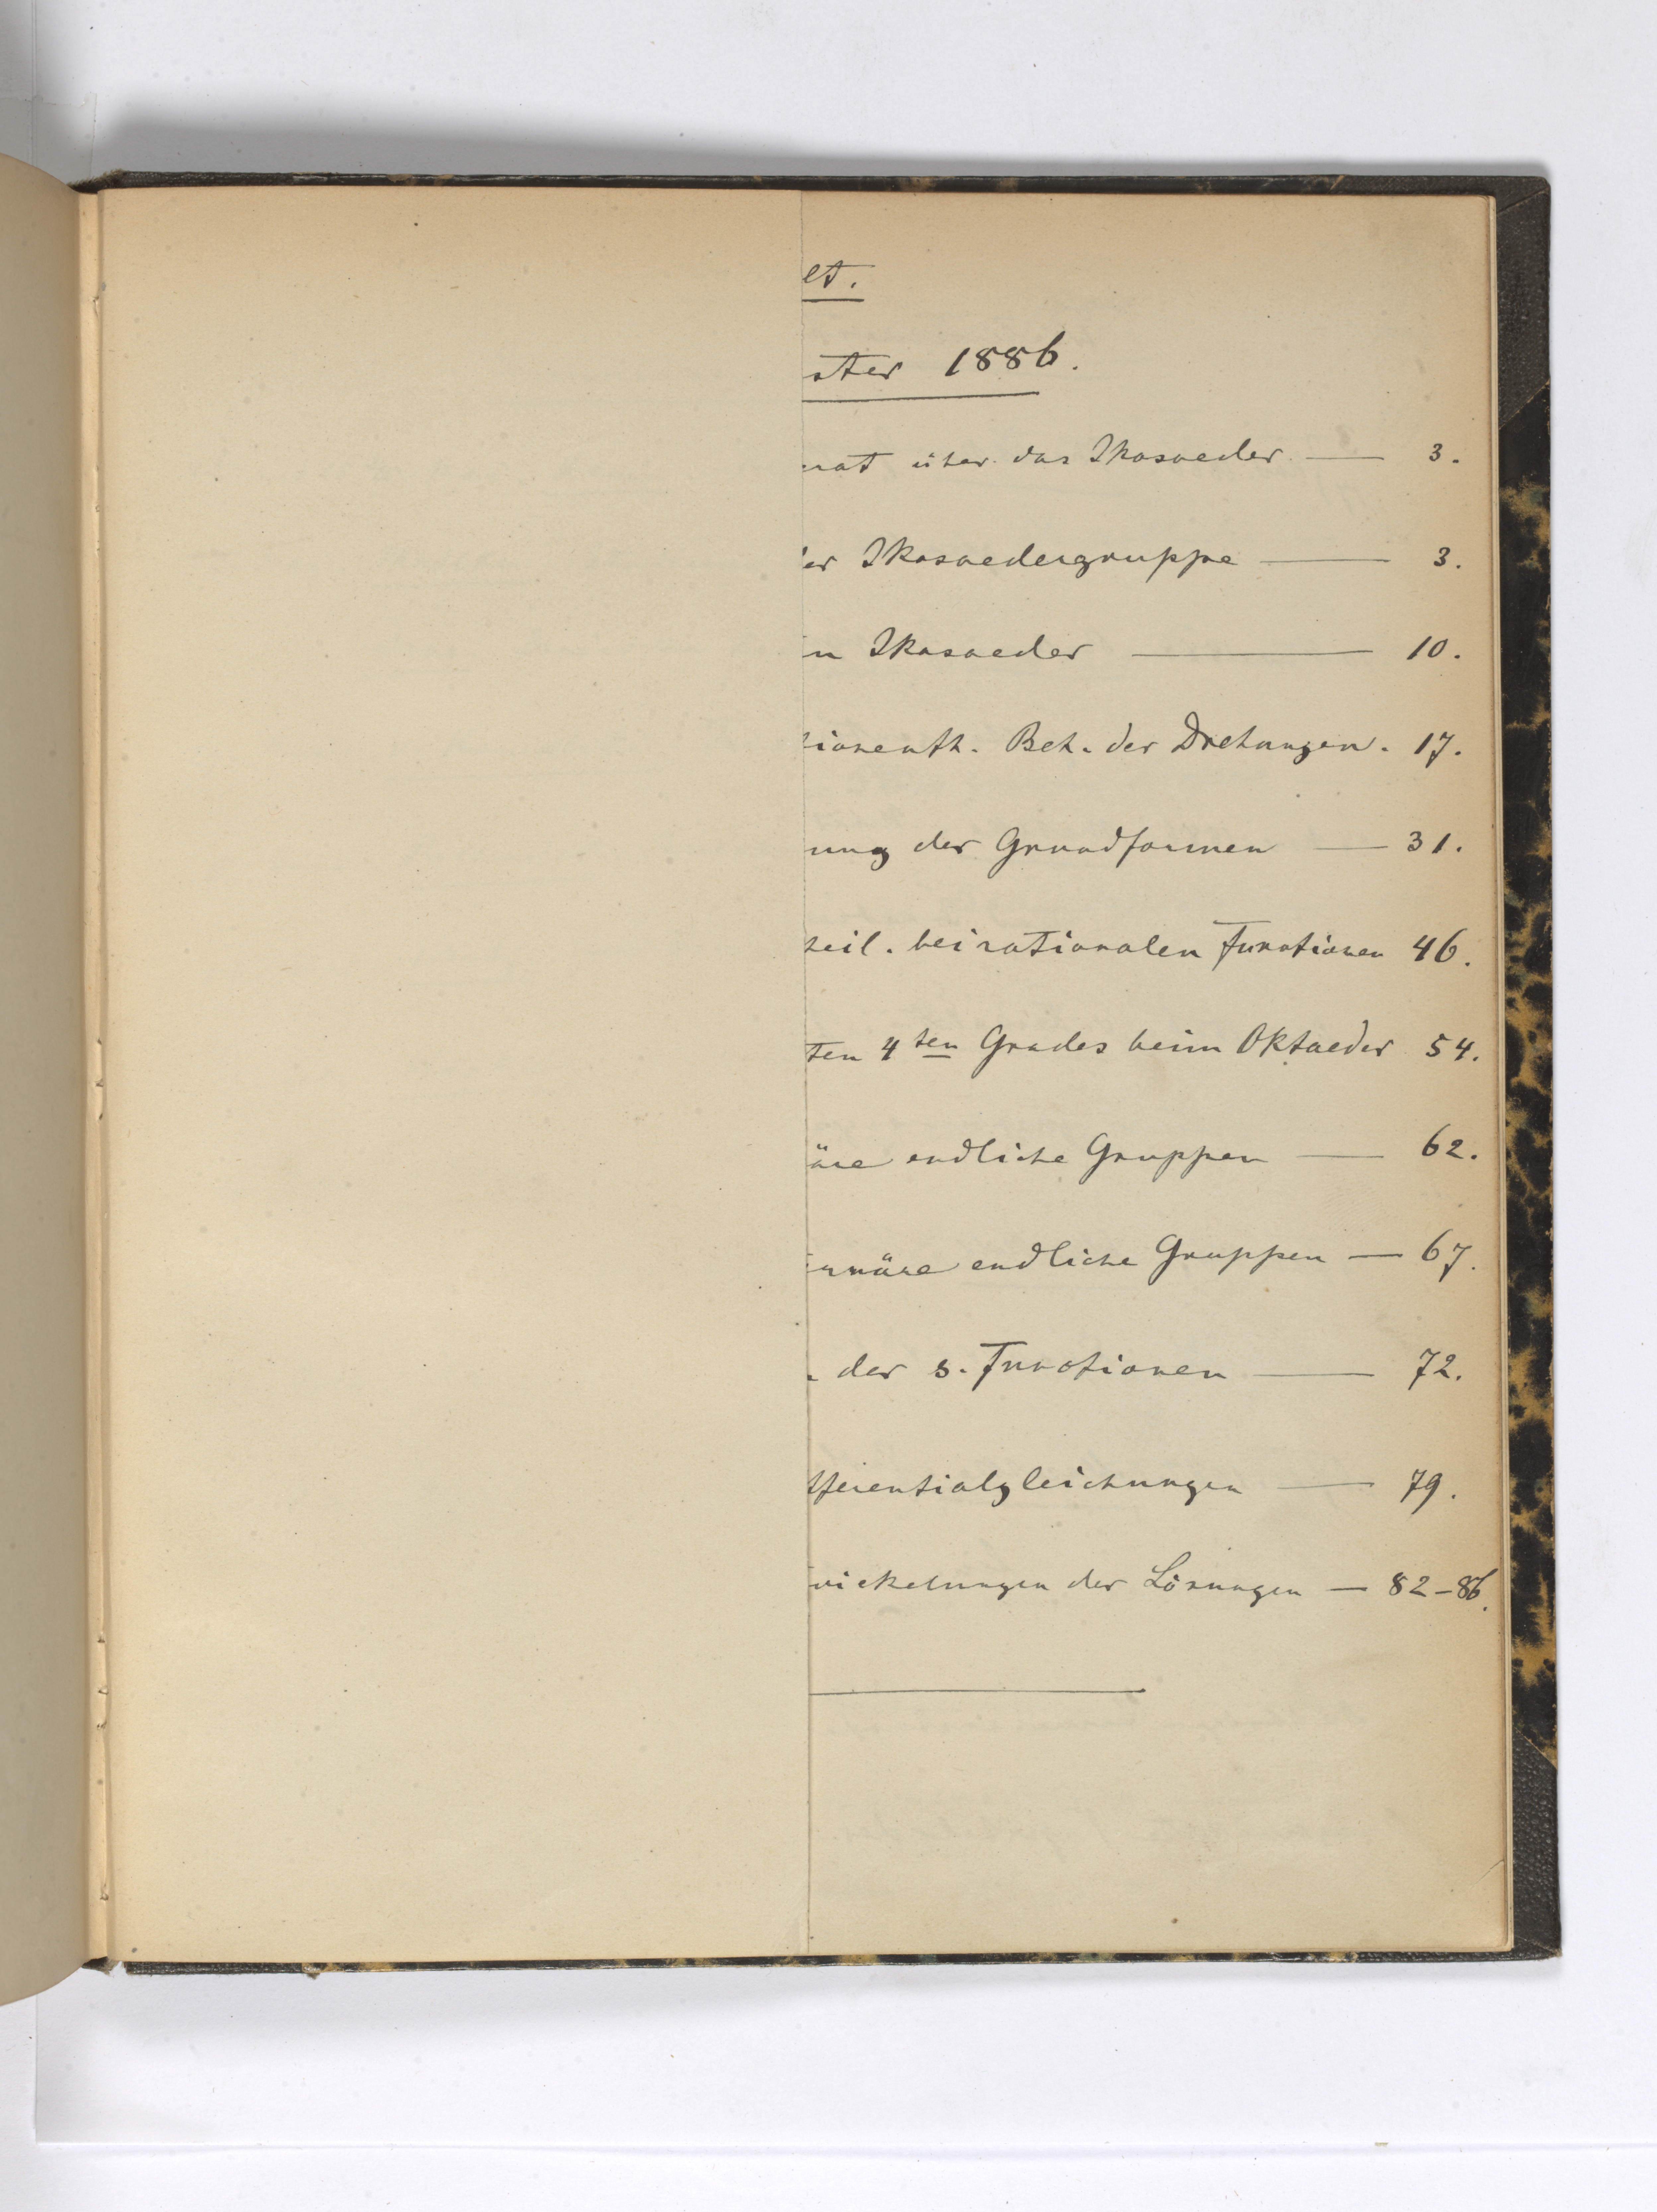 et.
ster 1886.
rat über das Ikosaeder — 3.
er Ikosaedergruppe — 3.
n Ikosaeder — 10.
tionenth. Beh. der Drehungen. 17.
ung der Grundformen — 31.
heil. bei rationalen Functionen 46.
ten 4ten Grades beim Oktaeder 54.
äre endliche Gruppen — 62.
rnäre endliche Gruppen — 67.
der s. Functionen — 72.
fferentialgleichungen — 79.
wickelungen der Lösungen — 82–86.